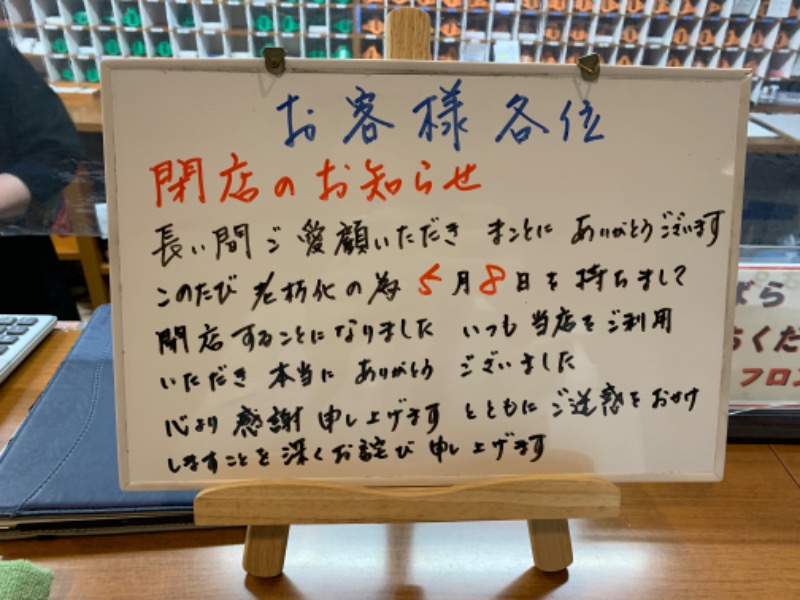 お客様各位
閉店のお知らせ
長い間ご愛顧いただき まことに ありがとうございます
このたび 老朽化の為 5月8日を持ちまして
閉店することになりました いつも当店をご利用
いただき 本当に ありがとう ございました
心より 感謝 申し上げます とともに ご迷惑を おかけ
しますことを 深くお詫び 申し上げます
ばら
ちくだ
フロン